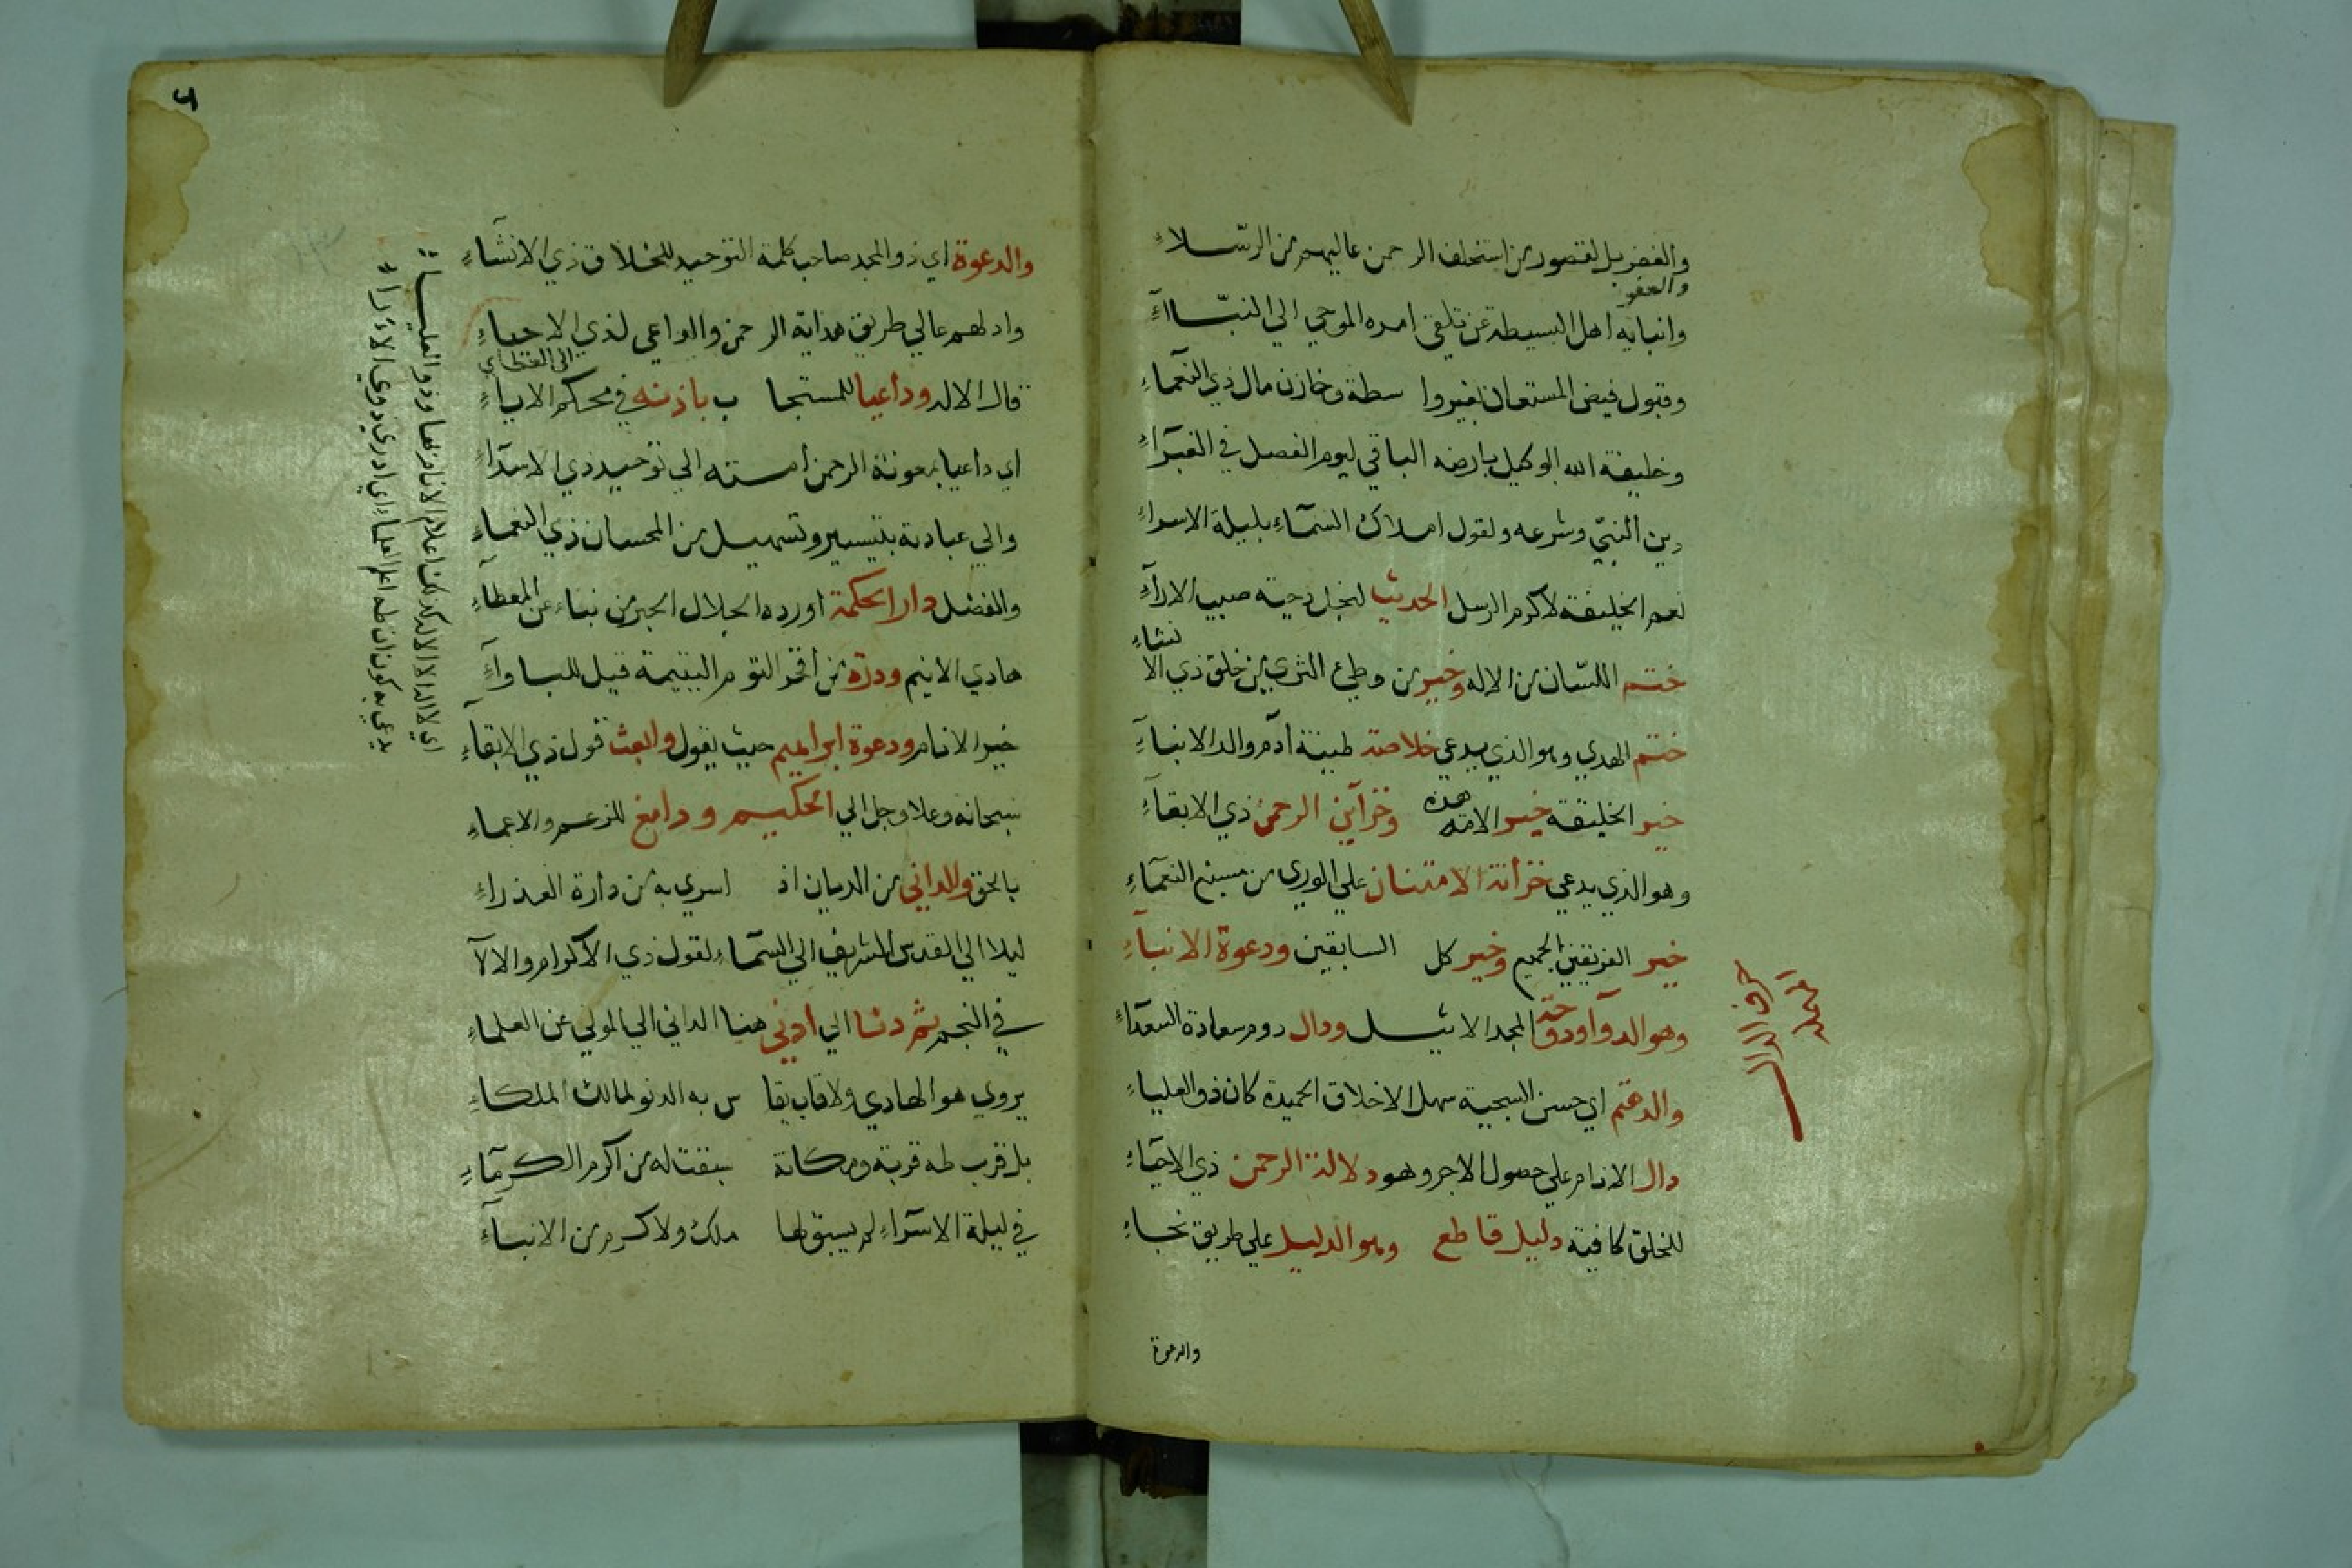 والفضر بل لقصور من استخلف الرحمن عاليهم من الرسلاء
والعفو
وانبايه اهل البسيطة عن تلقي امره الموحي الي النبّاآء
وقبول فيض المستعان بغير وا سطة وخازن مال ذي النعماء
وخليفة الله الوكيل بارضه الباقي ليوم الفصل في الغبرآء
دين النبيّ وشرعه ولقول املاك السمآء بليلة الاسراء
نعم الخليفة لاكرم الرسل الحديث لنجل دحية صبيب الارآء
ختم اللسان من الاله وخير من وطئ الثري من خلق ذي الا
نشاء
ختم الهدي وهو الذي يدعي خلاصة طينة آدم والد الانبآء
خير الخليقة خير هذه الامة وخزآين الرحمن ذي الابقآء
وهو الذي يدعي خزانة الامتنان علي الوري من مسبغ النعمآء
خير الفريقين الجميع وخير كل السابقين ودعوة الانبيآء
وهو الدوآ ودوحة المجد الاثيل ودال دوم سعادة السعدآء
حرف الدال
والدعثم اي حسن السجية سهل الاخلاق الحميدة كان ذو العلياء
دال الانام علي حصول الاجر وهو دلالة الرحمن ذي الاحيآء
للخلق كافية دليل قاطع وهو الدليل علي طريق نجاء
والدعوة
والدعوة اي ذو المجد صاحب كلمة التوحيد للخلاق ذي الانشآء
وادلهم عالي طريق هداية الرحمن والواعي لذي الاحياء
قال الاله وداعيا للمستجا ب باذنه في محكم الانباء
اي داعيا بمعونة الرحمن امته الي توحيد ذي الاسدآء
والي عبادته بتيسير وتسهيل من المحسان ذي النعماء
والفضل دار الحكمة اورده الجلال الحبر من نباء عن المعطآء
هادي الانيم ودرة من افخر التوم اليتيمة قيل للباوآء
خير الانام ودعوة ابراهيم حيث يقول وابعث قول ذي الابقآء
سبحانه وعلا وجل الي الحكيم ودامغ للزعم والاعماء
بالحق والداني من الديان اذ اسري به من دارة العذراء
ليلا الي القدس الشريف الي السمآء لقول ذي الاكرام والالآ
في النجم ثم دنا الي ادني هنا الداني الي المولي عن العلماء
يروي هو الهادي ولا قاب يقا س به الدنو لمالك الملكاء
بل قرب طه قربة ومكانة سبقت له من اكرم الكرمآء
في ليلة الاسرآء لم يسبق لها ملك ولا كرم من الانبيآء